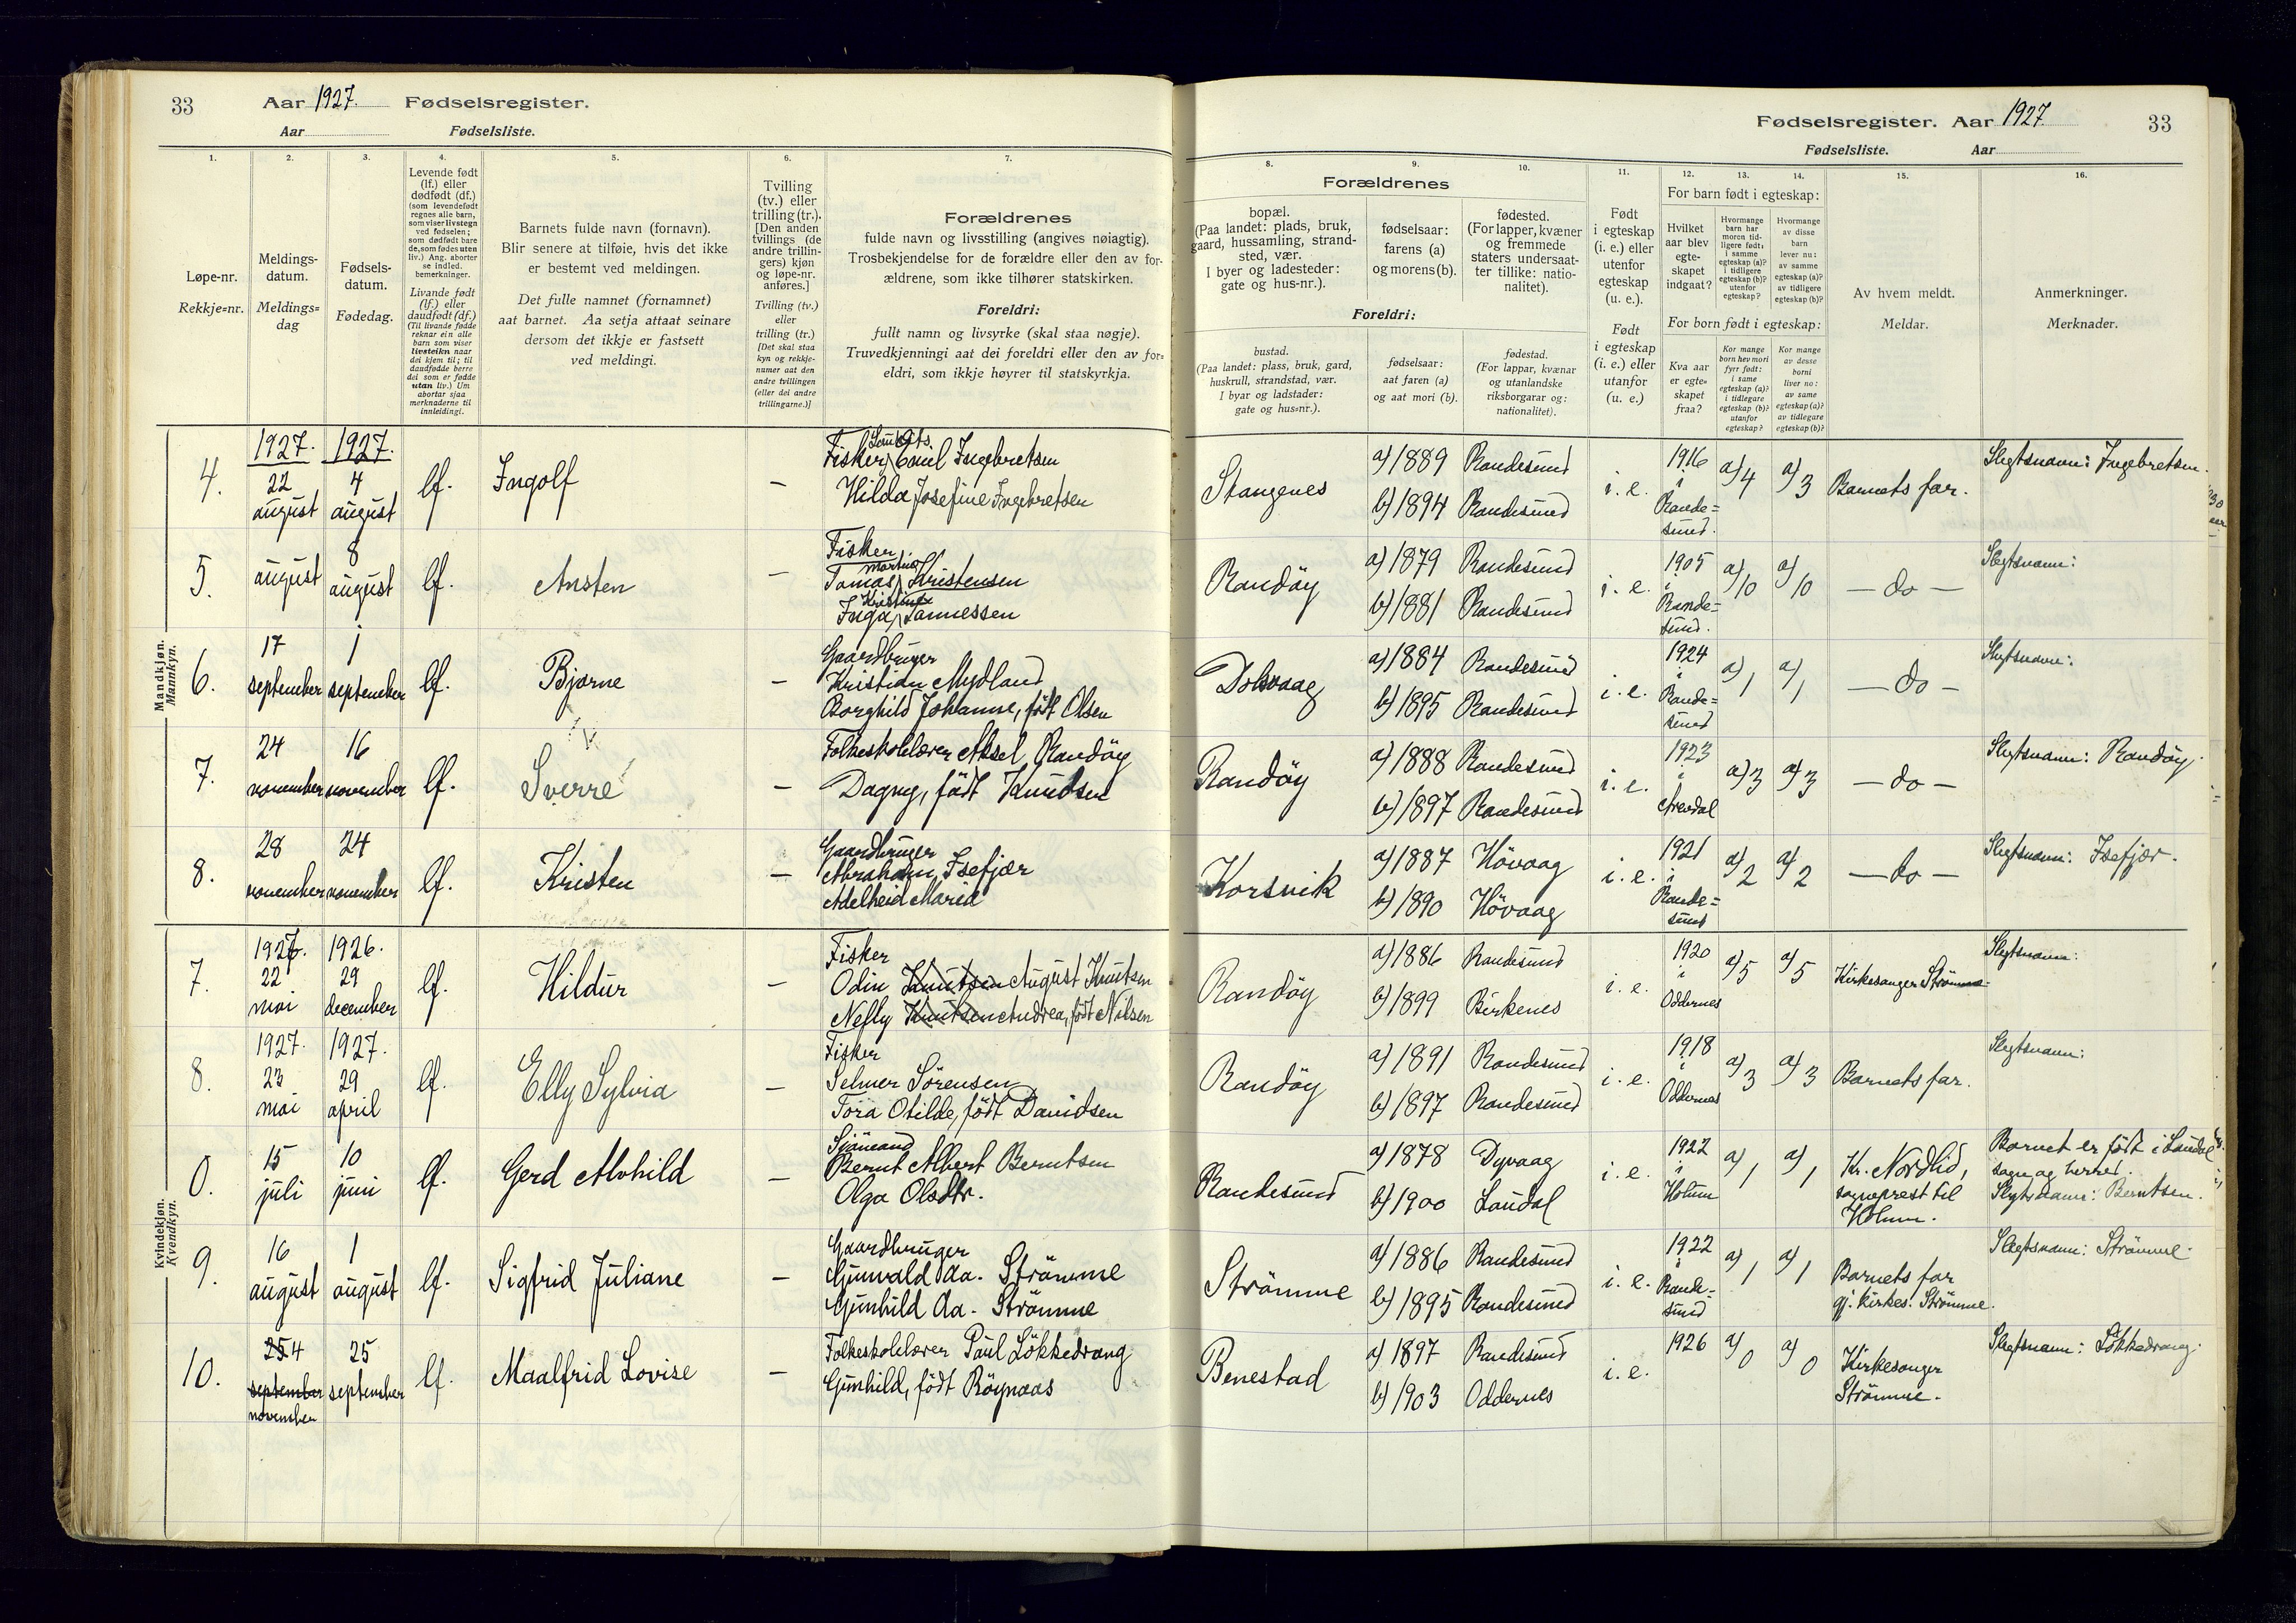 33
Aar 1927. Fødselsregister.
Aar Fødselsliste.
1.
2.
3.
4.
5.
6.
7.
Løpe-nr.
Rekkje=nr.
Meldings-
datum.
Meldings=
dag
Fødsels-
datum.
Fødedag.
Levende født
(lf.) eller
dødfødt (df.)
(som levendefødt
regnes alle barn,
som viser livstegn
ved fødselen;
som dødfødt bare
de, som fødes uten
liv.) Ang. aborter
se indled.
bemerkninger.
Livande født
(lf.) eller
daudfødt (df.)
(Til livande fødde
reknar ein alle
barn som viser
livsteikn naar
dei kjem til; til
daudfødde berre
dei som er fødde
utan liv.) Um
abortar sjaa
merknaderne til
innleidingi.
Barnets fulde navn (fornavn).
Blir senere at tilføie, hvis det ikke
er bestemt ved meldingen.
Det fulle namnet (fornamnet)
aat barnet. Aa setja attaat seinare
dersom det ikkje er fastsett
ved meldingi.
Tvilling
(tv.) eller
trilling (tr.).
[Den anden
tvillings (de
andre trillin-
gers) kjøn
og løpe-nr.
anføres.]
Tvilling (tv.)
eller
trilling (tr.)
[Det skal staa
kyn og rekkje-
numer aat den
andre tvillingen
(eller dei andre
trillingarne.)]
Forældrenes
fulde navn og livsstilling (angives nøiagtig).
Trosbekjendelse for de forældre eller den av for-
ældrene, som ikke tilhører statskirken.
Foreldri:
fullt namn og livsyrke (skal staa nøgje).
Truvedkjenningi aat dei foreldri eller den av for=
eldri, som ikkje høyrer til statskyrkja.
Mandkjøn.
Mannkyn.
4.
1927.
22
august
1927.
4
august
lf.
Ingolf
–
Fisker Emil Ingebretsen
Hilda Josefine Ingebretsen
5.
august
8
august
lf.
Ansten
–
Fisker
Martin
Tomas Kristensen
Kristine
Inga Tannessen
6.
17
september
1
september
lf.
Bjarne
–
Gaardbruger
Kristian Mydland
Borghild Johanne, født Olsen
7.
24
november
16
november
lf.
Sverre
–
Folkeskolelærer Aksel Randöy
Dagny, født Knudsen
8.
28
november
24
november
lf.
Kristen
–
Gaardbruger
Abraham Isefjær
Adelheid Maria
Kvindekjøn.
Kvendkyn.
7.
1927.
22
mai
1926.
29
december
lf.
Hildur
–
Fisker
Odin Knutsen August Knutsen
Nelly Knutsen Andrea, født Nilsen
8.
1927.
23
mai
1927.
29
april
lf.
Elly Sylvia
–
Fisker
Selmer Sörensen
Tora Otilde, født Danidsen
0.
15
juli
10
juni
lf.
Gerd Alvhild
–
Sjömand
Bernt Albert Berntsen
Olga Olsdtr.
9.
16
august
1
august
lf.
Sigfrid Juliane
–
Gaardbruger
Gunvald Aa. Strömme
Gunhild Aa. Strömme
10.
25 4
september
november
25
september
lf.
Maalfrid Lovise
–
Folkeskolelærer Paul Lökkedrang
Gunhild, født Röynaas
Fødselsregister. Aar 1927
33
Fødselsliste. Aar
8.
9.
10.
11.
12.
13.
14.
15.
16.
Forældrenes
bopæl.
(Paa landet: plads, bruk,
gaard, hussamling, strand-
sted, vær.
I byer og ladesteder:
gate og hus-nr.).
fødselsaar:
farens (a)
og morens (b).
fødested.
(For lapper, kvæner
og fremmede
staters undersaat-
ter tillike: natio-
nalitet).
Foreldri:
bustad.
(Paa landet: plass, bruk, gard,
huskrull, strandstad, vær.
I byar og ladstader:
gate og hus=nr.).
fødselsaar:
aat faren (a)
og aat mori (b).
fødestad.
(For lappar, kvænar
og utanlandske
riksborgarar og:
nationalitet).
Født
i egteskap
(i. e.) eller
utenfor
egteskap
(u. e.).
Født
i egteskap
(i. e.) eller
utanfor
(u. e.)
For barn født i egteskap:
Hvilket
aar blev
egte-
skapet
indgaat?
Hvormange
barn har
moren tid-
ligere født:
i samme
egteskap (a)?
i tidligere
egteskap (b)?
utenfor
egteskap?
Hvormange
av disse
barn
lever nu:
av samme
egteskap (a)?
av tidligere
egteskap (b)?
For born født i egteskap:
Kva aar
er egte=
skapet
fraa?
Kor mange
born hev mori
fyrr født:
i same
egteskap (a)?
i tidlegare
egteskap (b)?
utanfor
egteskap?
Kor mange
av desse
borni
liver no:
av same
egteskap (a)?
av tidlegare
egteskap (b)?
Av hvem meldt.
Meldar.
Anmerkninger.
Merknader.
Stangenes
a) 1889 Randesund
b) 1894 Randesund
i. e.
1916
i
Rande=
sund.
a) 4
a) 3
Barnets far.
Slegtsnavn: Ingebretsen.
Randöy
a) 1879 Randesund
b) 1881 Randesund
i. e.
1905
i
Rande=
sund.
a) 10
a) 10
– do –
Slegtsnavn:
Dolsvaag
a) 1884 Randesund
b) 1895 Randesund
i. e.
1924
i
Rande=
sund
a) 1
a) 1
– do –
Slegtsnavn:
Randöy
a) 1888 Randesund
b) 1897 Randesund
i. e.
1923
i
Arendal
a) 3
a) 3
– do –
Slegtsnavn: Randöy.
Korsvik
a) 1887 Hövaag
b) 1890 Hövaag
i. e.
1921
i
Rande=
sund
a) 2
a) 2
– do –
Slegtsnavn: Isefjær.
Randöy
a) 1886 Randesund
b) 1899 Birkenes
i. e.
1920
i
Oddernes
a) 5
a) 5
Kirkesanger Strömme
Slegtsnavn:
Randöy
a) 1891 Randesund
b) 1897 Randesund
i. e.
1918
i
Oddernes
a) 3
a) 3
Barnets far.
Slegtsnavn:
Randesund
a) 1878 Dyvaag
b) 1900 Laudal
i. e.
1922
i
Holum
a) 1
a) 1
Kr. Nordlid,
sogneprest til
Holum.
Barnet er født i Laudal
sogn og herred.
Slegtsnavn: Berntsen.
Strömme
a) 1886 Randesund
b) 1895 Randesund
i. e.
1922
i
Rande=
sund
a) 1
a) 1
Barnets far
gj. kirkes. Strömme.
Slegtsnavn: Strömme.
Benestad
a) 1897 Randesund
b) 1903 Oddernes
i. e.
1926
a) 0
a) 0
Kirkesanger
Strömme.
Slegtsnavn: Lökkedrang.